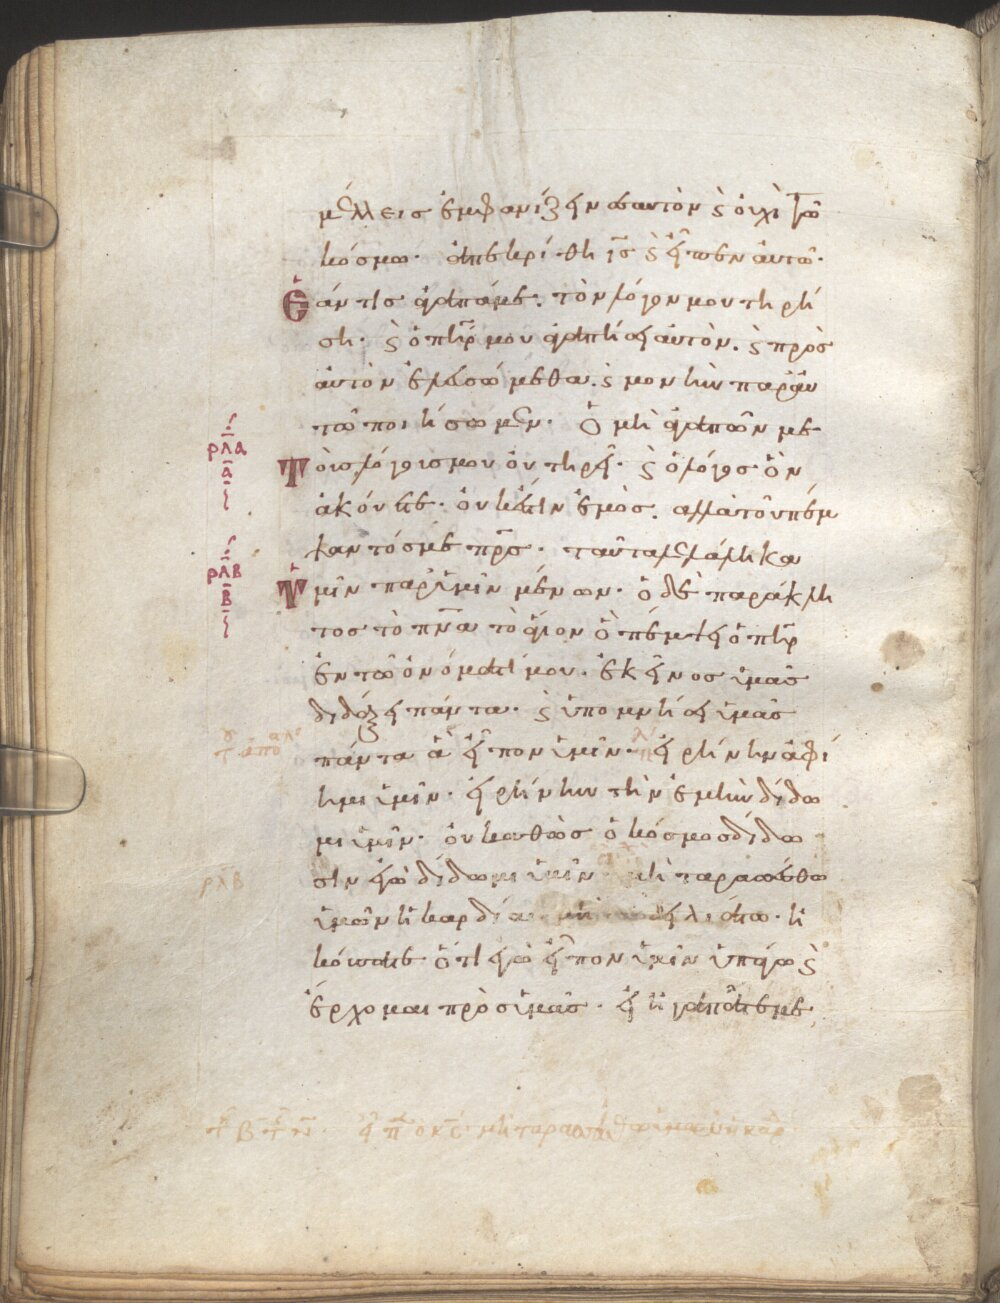 μέλλεις ἐμφανίζειν σεαυτὸν ϛ οὐχὶ τῶ
κόσμω· ἀπεκρίθη ις ϛ εἶπεν αὐτῶ·
Ἐάν τις ἀγαπά με· τὸν λόγον μου τηρή
ση· ϛ ὁ πηρ μου ἀγαπήσει αὐτὸν· ϛ πρὸς
αὐτὸν ἐλευσώμεθα· ϛ μονὴν παρ' αυ
τῶ ποιήσωμεν· Ὁ μὴ ἀγαπῶν με
Τοὺς λόγους μου οὐ τηρεῖ· ϛ ὁ λόγος ὃν
ἀκούετε· οὐκ ἔστιν ἐμὸς· ἀλλὰ τοῦ πέμ
ψαντός με πρς· ταῦτα λελάληκα
Ὑμῖν παρ' ὑμῖν μένων· ὁ δὲ παράκλη
τος τὸ πνα τὸ ἅγιον ὃ πέμψει ὁ πηρ
ἐν τῶ ὀνόματί μου· ἐκεῖνος ὑμᾶς
διδάξει πάντα· ϛ ὑπομνήσει ὑμᾶς
πάντα ἃ εἶπον ὑμῖν· εἰρήνην ἀφί
ημι ὑμῖν· εἰρήνην τὴν ἐμὴν δίδω
μι ὑμῖν· οὐ καθὼς ὁ κόσμος δίδω
σιν ἐγὼ δίδωμι ὑμῖν· μὴ ταρασσέσθω
ὑμῶν ἡ καρδία· μη δειλιάτω· ἠ
κούσατε ὅτι ἐγὼ εἶπον ὑμῖν ὑπάγω ϛ
ἔρχομαι πρὸς ὑμᾶς· εἰ ἠγαπᾶτε με
ρλα
α
ι
ρλβ
β
ι
ρλβ
εἶπ ὁ κς μὴ ταρασσέσθω ὑμῶν ἡ καρ